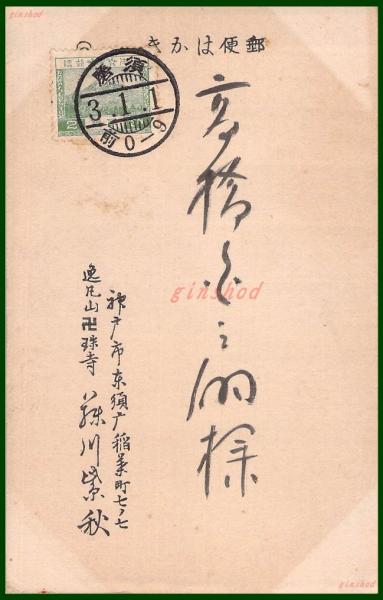 ginshod
郵便はがき
須磨
3.1.1
前0-9
高橋
ginshod
神戸市東須磨稲葉町七ノ七
逸見山卍珠寺
川紫秋
ginshod